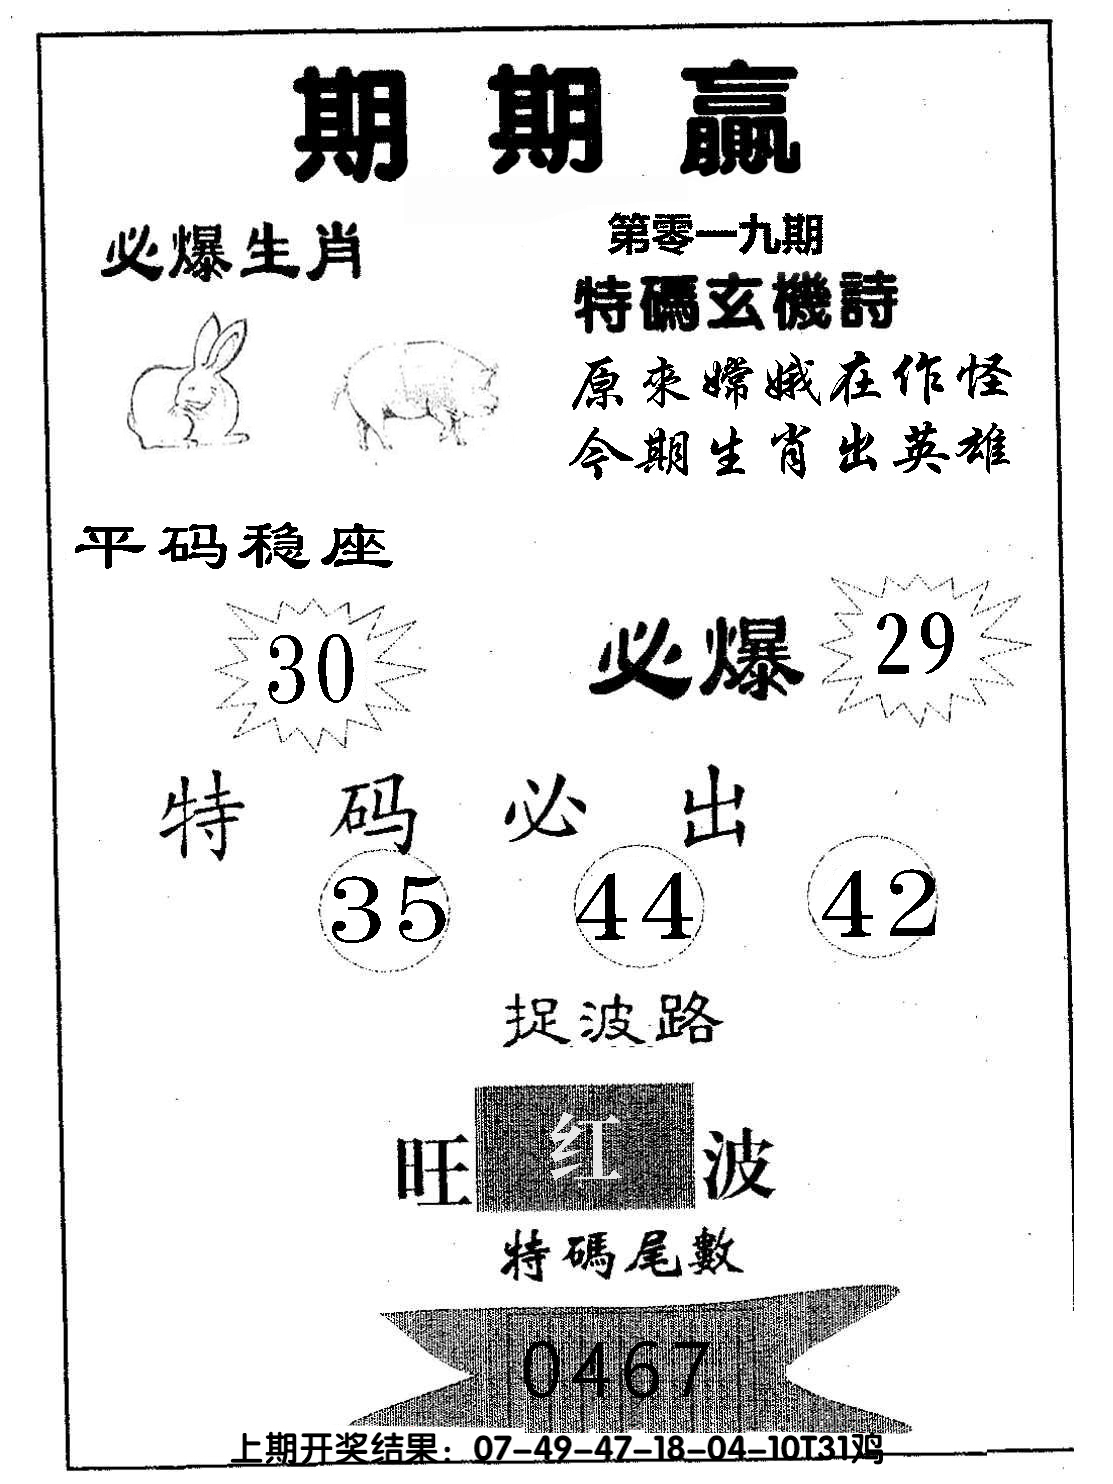 期期赢
必爆生肖
第零一九期
特碼玄機詩
原來嫦娥在作怪
今期生肖出英雄
平码稳座
30
必爆 29
特码必出
35 44 42
捉波路
旺红波
特碼尾數
0467
上期开奖结果：07-49-47-18-04-10T31鸡